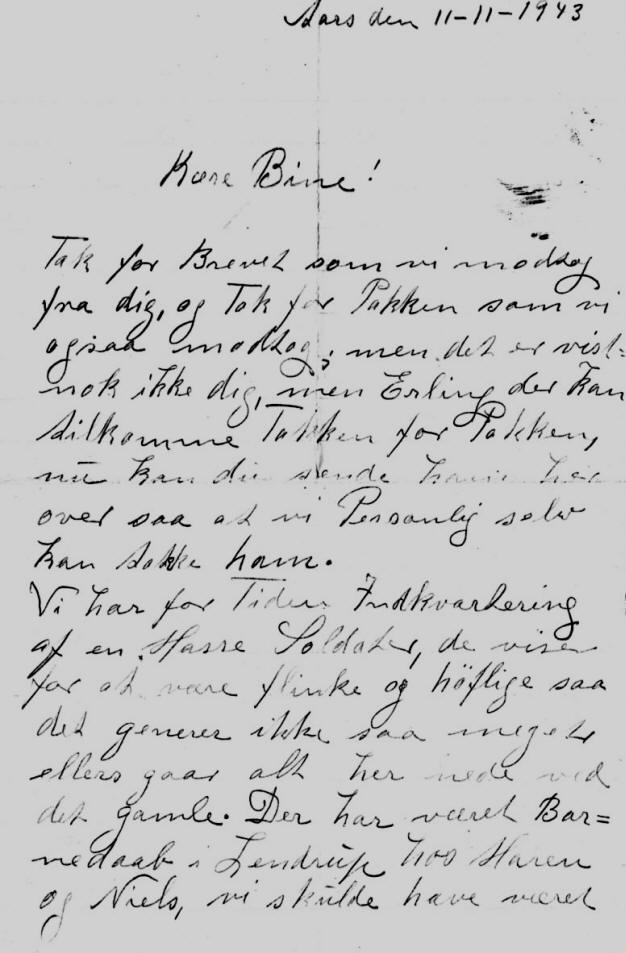 Aars den 11-11-1943
Kære Bine!
Tak for Brevet som vi modtog
fra dig, og Tak for Pakken som vi
ogsaa modtog, men det er vist=
nok ikke dig, men Erling der kan
tilkomme Takken for Pakken,
nu kan du sende ham her
over saa at vi Personlig selv
kan takke ham.
Vi har for Tiden Indkvartering
af en Masse Soldater, de viser
for at være flinke og høflige saa
det generer ikke saa meget
ellers gaar alt her nede ved
det gamle. Der har været Bar=
nedaab i Lendrup hos Maren
og Niels, vi skulde have været